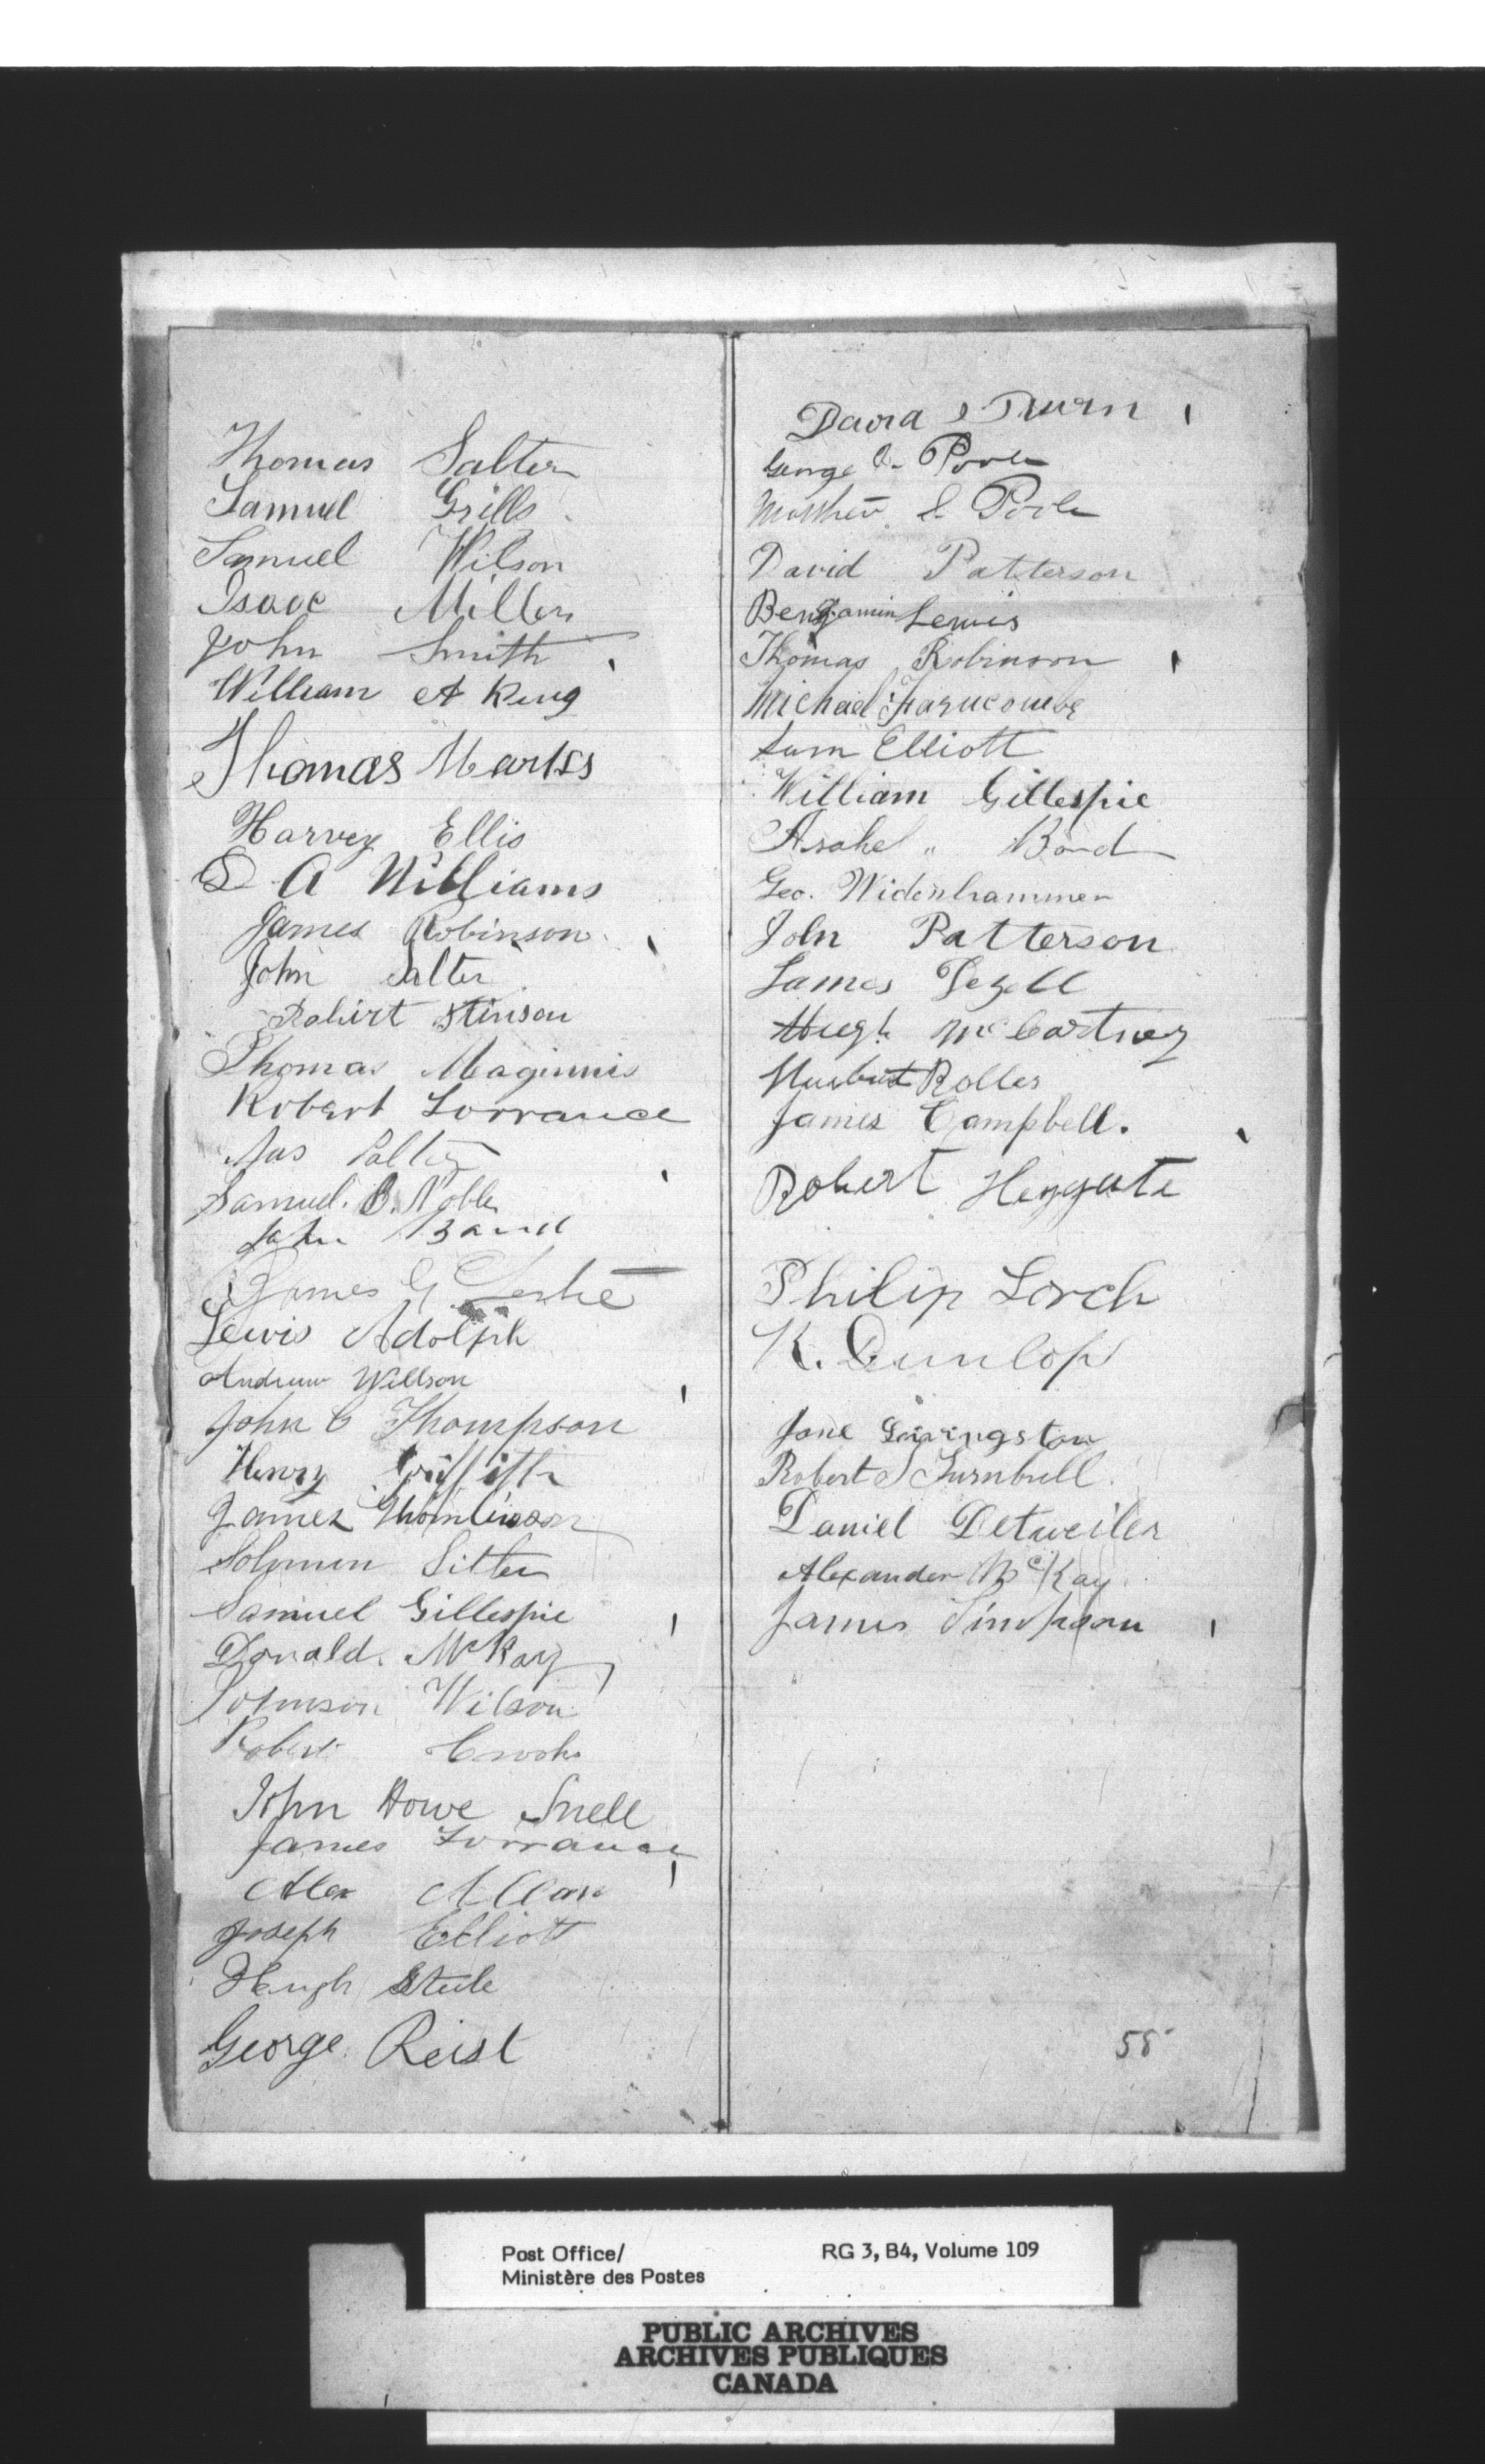 Thomas Salter
Samuel Grills
Samuel Wilson
Isaac Miller
John Smith
William A King
Thomas Marks
Harvey Ellis
A Williams
James Robinson
John Salter
Robert Stinson
Thomas Maginnis
Robert Lorrance
Jas Salter
Samuel. B. Noble
John Band
James G Leslie
Lewis Adolph
Andrew Willson
John C Thompson
Henry Griffith
James Thomlinson
Solomon Sitler
Samuel Gillespie
Donald. McKay
Johnson Wilson
Robert Crooks
John Howe Snell
James Lorrance
Alex Allan
Joseph Elliott
Hugh Steele
George Reist
David
George Poole
Matthew S. Poole
David Patterson
Benjamin Lewis
Thomas Robinson
Michael
Sam Elliott
William Gillespie
Asahel Bond
Geo. Widenhammer
John Patterson
James Pezell
Hugh McCartney
Rolles
James Campbell.
Robert Heygate
Philip Lorch
K. Dunlop
Jane Livingston
Robert S Turnbull
Daniel Detweiler
Alexander McKay
James Simpson
58
Post Office/ RG 3, B4, Volume 109
Ministère des Postes
PUBLIC ARCHIVES
ARCHIVES PUBLIQUES
CANADA